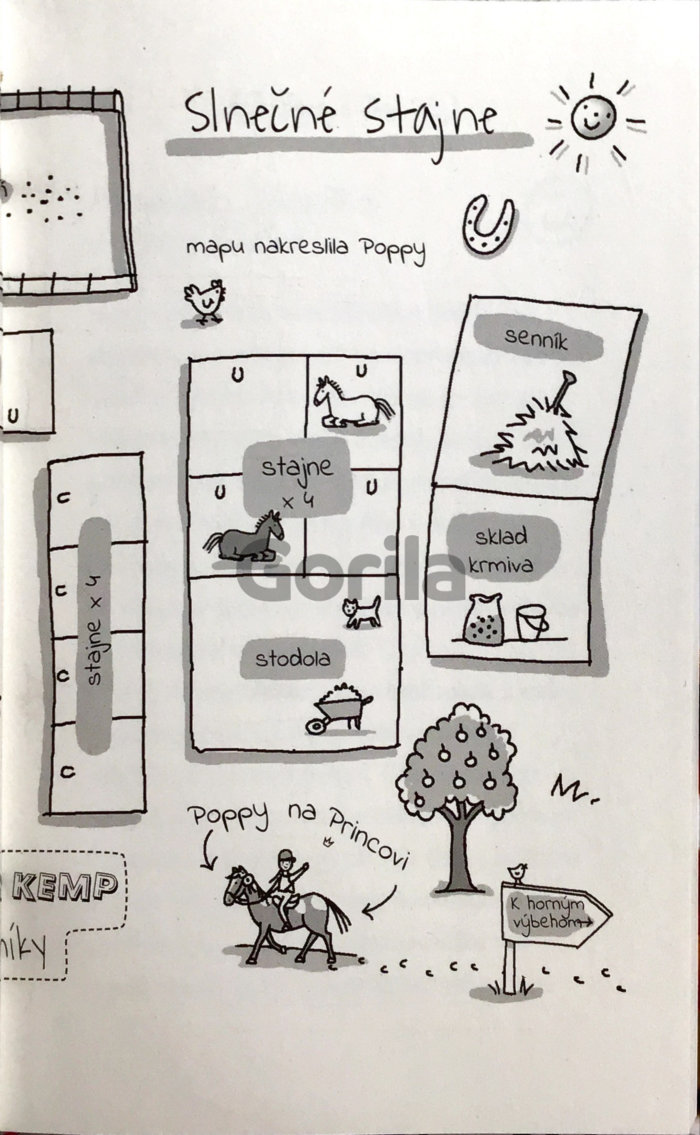 Slnečné stajne
mapu nakreslila Poppy
senník
stajne
x 4
sklad
krmiva
stajne x 4
stodola
Gorila
Poppy na Princovi
KEMP
K horným
výbehom